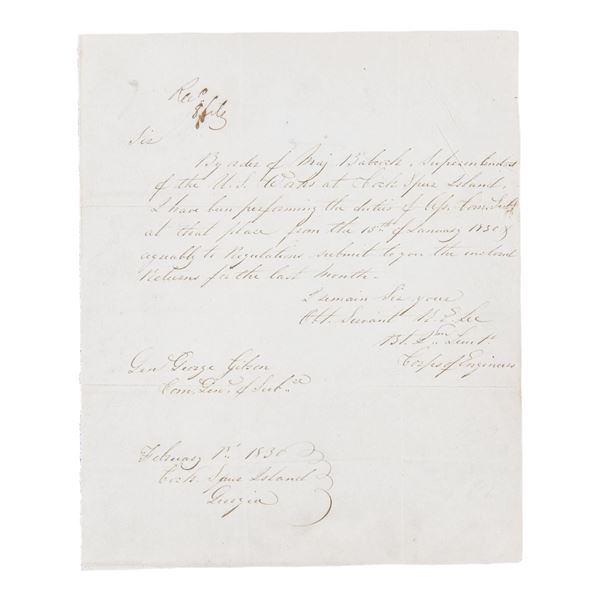 Recd
8 July
Sir
By order of Maj Babcock, Superintendent
of the U.S. Works at Cock Spur Island,
I have been performing the duties of Ast. Com. Subs
at that place from the 15th of January 1830 &
agreeably to Regulations submit to you the enclosed
Returns for the last Month.
I remain Sir your
Obt. Servant R. E. Lee
Bt. 2nd Lieut
Corps of Engineers
Gen George Gibson
Com. Genl. of Subce
February 1st. 1830
Cock Spur Island
Georgia